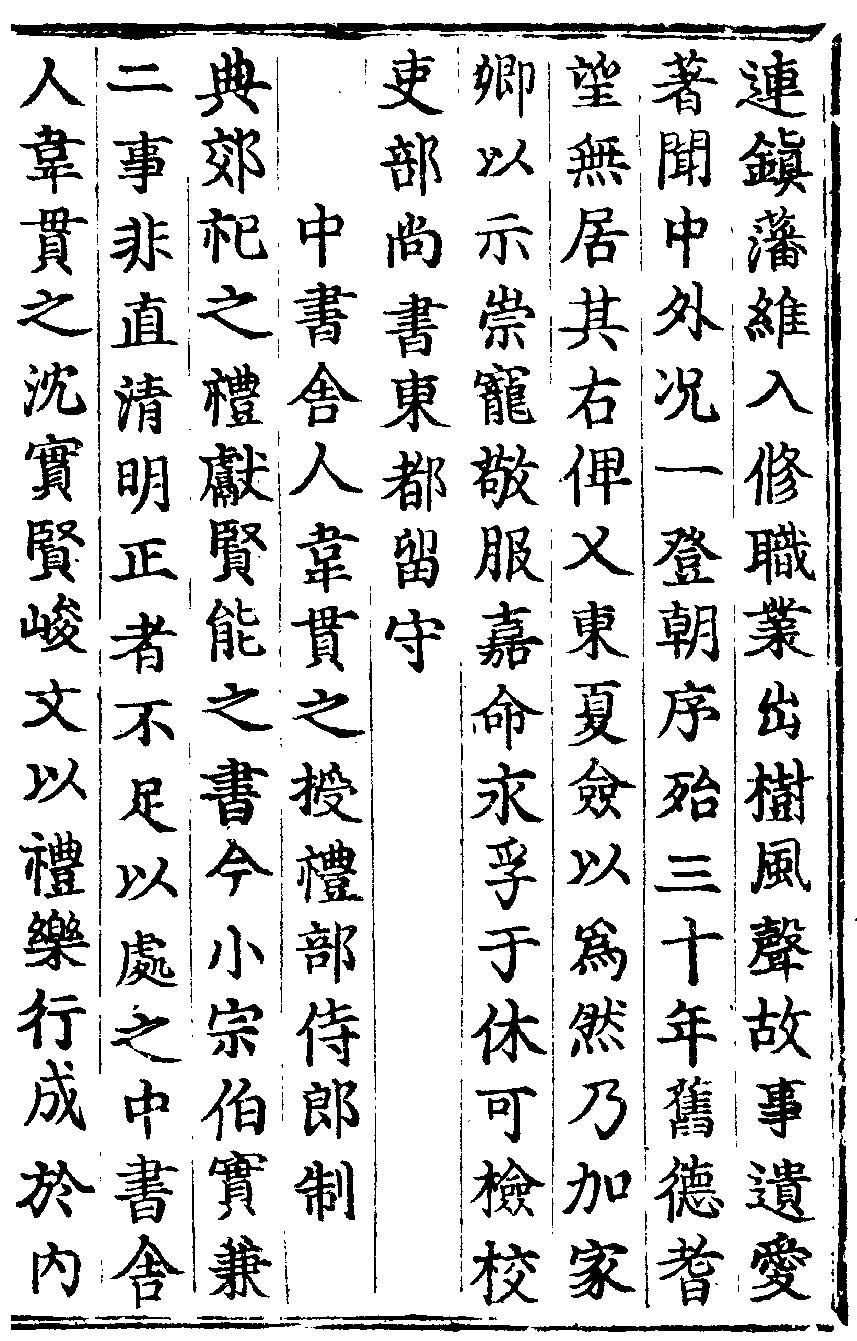 連鎮藩維入修職業出樹風聲故事遺愛
著聞中外况一登朝序殆三十年舊德耆
望無居其右俾乂東夏僉以爲然乃加家
卿以示崇寵敬服嘉命永孚于休可檢校
吏部尚書東都留守
中書舍人韋貫之授禮部侍郎制
典郊祀之禮獻賢能之書今小宗伯實兼
二事非直清明正者不足以處之中書舍
人韋貫之沈實賢峻文以禮樂行成於内